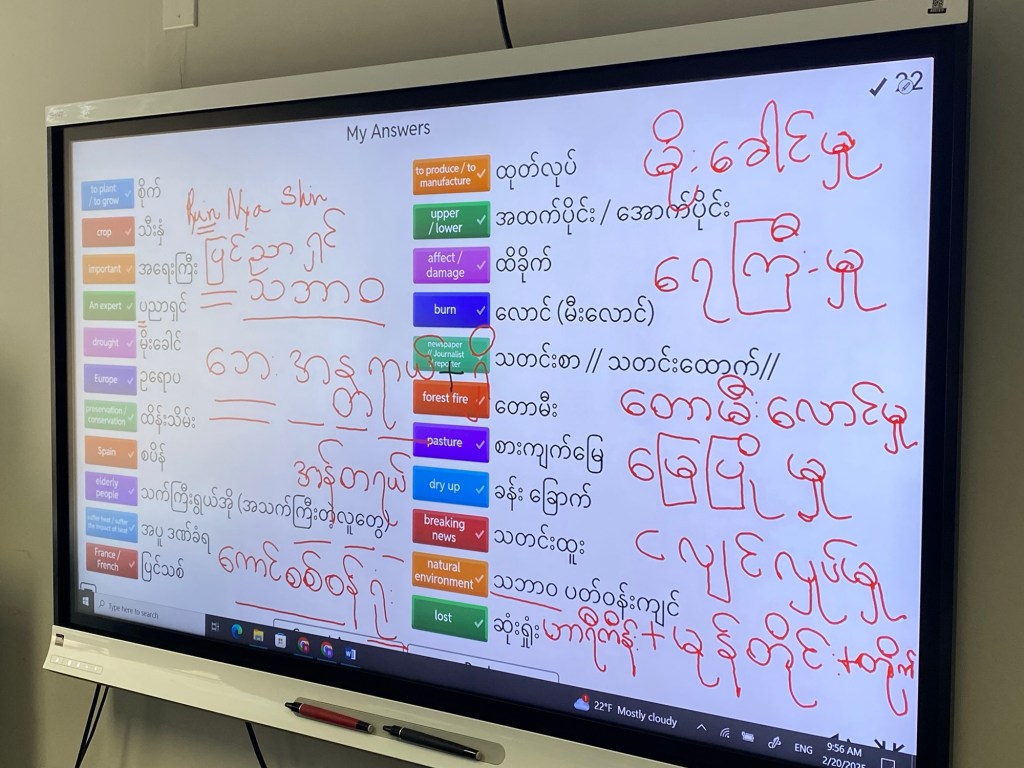 My Answers
22
to plant / to grow စိုက်
crop သီးနှံ
important အရေးကြီး
An expert ပညာရှင်
drought မိုးခေါင်
Europe ဥရောပ
preservation / conservation ထိန်းသိမ်း
Spain စပိန်
elderly people သက်ကြီးရွယ်အို (အသက်ကြီးတဲ့လူတွေ)
suffer heat / suffer the impact of heat အပူဒဏ်ခံရ
France / French ပြင်သစ်
Pyin Nya Shin
ပြင်ညာရှင်
သဘာဝ
ဘေးအန္တရာယ်
အန်တရယ်
to produce / to manufacture ထုတ်လုပ်
upper / lower အထက်ပိုင်း / အောက်ပိုင်း
affect / damage ထိခိုက်
burn လောင် (မီးလောင်)
newspaper // Journalist reporter သတင်းစာ // သတင်းထောက်//
forest fire တောမီး
pasture စားကျက်မြေ
dry up ခန်းခြောက်
breaking news သတင်းထူး
natural environment သဘာဝ ပတ်ဝန်းကျင်
lost ဆုံးရှုံး
မိုးခေါင်မှု
ရေကြီးမှု
တောမီးလောင်မှု
မြေပြိုမှု
ငလျင်လှုပ်မှု
ဟာရီကိန်း + မုန်တိုင်း + တိုက်
Type here to search
22°F Mostly cloudy
ENG
9:56 AM
2/20/2025